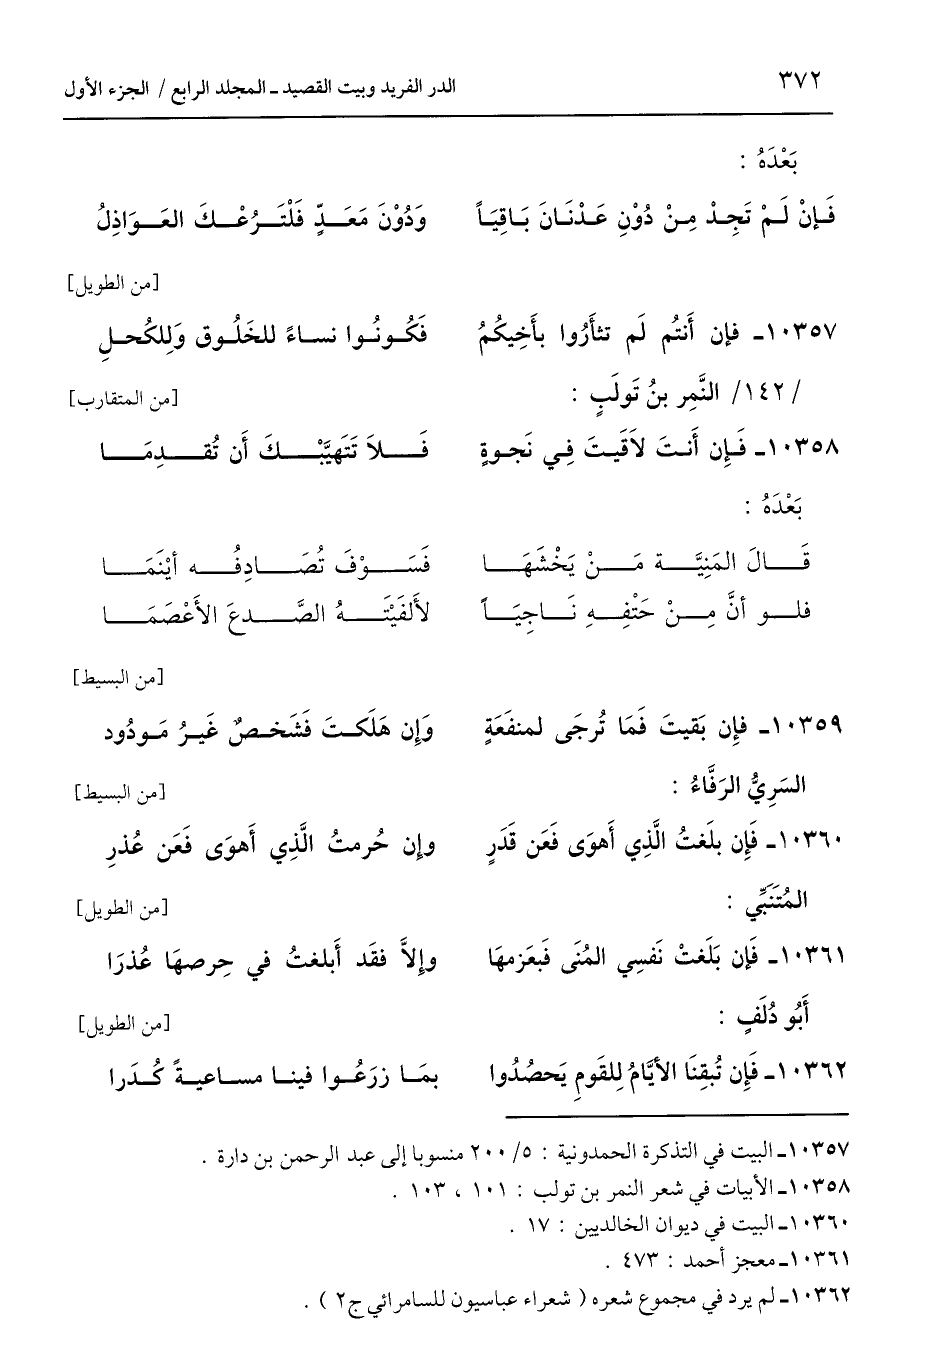 ٣٧٢ الدر الفريد وبيت القصيد ـ المجلد الرابع / الجزء الأول
بَعْدَهُ :
فَإِنْ لَمْ تَجِدْ مِنْ دُوْنِ عَدْنَانَ بَاقِيَاً وَدُوْنَ مَعَدٍّ فَلْتَرُعْكَ العَوَاذِلُ
[من الطويل]
١٠٣٥٧ـ فإن أَنتُم لَم تثأَرُوا بأَخِيكُمُ فَكُونُوا نساءً للخَلُوق وَلِلكُحلِ
/١٤٢/ النَّمِر بنُ تَولَبٍ : [من المتقارب]
١٠٣٥٨ـ فَإِن أَنتَ لاَقَيتَ فِي نَجوةٍ فَلاَ تَتَهيَّبْكَ أَن تُقدِمَا
بَعْدَهُ :
قَالَ المَنِيَّة مَنْ يَخْشَهَا فَسَوْفَ تُصَادِفُه أيْنَمَا
فلو أنَّ مِنْ حَتْفِهِ نَاجِيَاً لأَلفَيْتَهُ الصَّدعَ الأَعْصَمَا
[من البسيط]
١٠٣٥٩ـ فإِن بَقيتَ فَمَا تُرجَى لمنفَعَةٍ وَإِن هَلَكتَ فَشَخصٌ غَيرُ مَودُود
السَرِيُّ الرَفَّاءُ : [من البسيط]
١٠٣٦٠ـ فَإِن بلَغتُ الَّذِي أَهوَى فَعَن قَدَرٍ وإن حُرمتُ الَّذِي أَهوَى فَعَن عُذرِ
المُتَنَبِّي : [من الطويل]
١٠٣٦١ـ فَإِن بَلَغتْ نَفسِي المُنَى فَبعَزمهَا وإلاَّ فقَد أَبلغتُ في حِرصهَا عُذرَا
أَبُو دُلَفٍ : [من الطويل]
١٠٣٦٢ـ فَإِن تُبقِنَا الأيَّامُ لِلقَومِ يَحصُدُوا بمَا زرَعُوا فينا مساعيةً كُدَرا
١٠٣٥٧ـ البيت في التذكرة الحمدونية : ٥/ ٢٠٠ منسوبا إلى عبد الرحمن بن دارة .
١٠٣٥٨ـ الأبيات في شعر النمر بن تولب : ١٠١ ، ١٠٣ .
١٠٣٦٠ـ البيت في ديوان الخالديين : ١٧ .
١٠٣٦١ـ معجز أحمد : ٤٧٣ .
١٠٣٦٢ـ لم يرد في مجموع شعره ( شعراء عباسيون للسامرائي ج٢ ) .